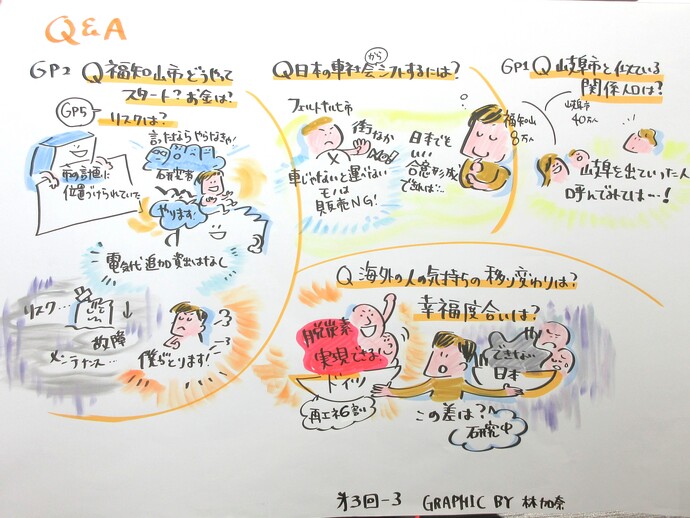 Q&A
GP2 Q福知山市どうやって
スタート?お金は?
リスクは?
GP5
市の計画に
位置づけられていた
言ったならやらなきゃ!
石研究者
やります!
電気代追加支出はなし
リスク…
故障
メンテナンス…
僕らがとります!
Q日本の車社会からシフトするには?
フェルトキルヒ市
街なか
車じゃないと運べない
モノは
販売NG!
日本でも
いい
合意形成
できれば…
GP1 Q 岐阜市と似ている
関係人口は?
福知山
8万人
岐阜市
40万人
岐阜を出ていった人
呼んでみては…!
Q 海外の人の気持ちの移り変わりは?
幸福度合いは?
脱炭素
実現できる!
ドイツ
再エネ6割
できない
日本
この差は?
研究中
第3回-3 GRAPHIC BY 林加奈